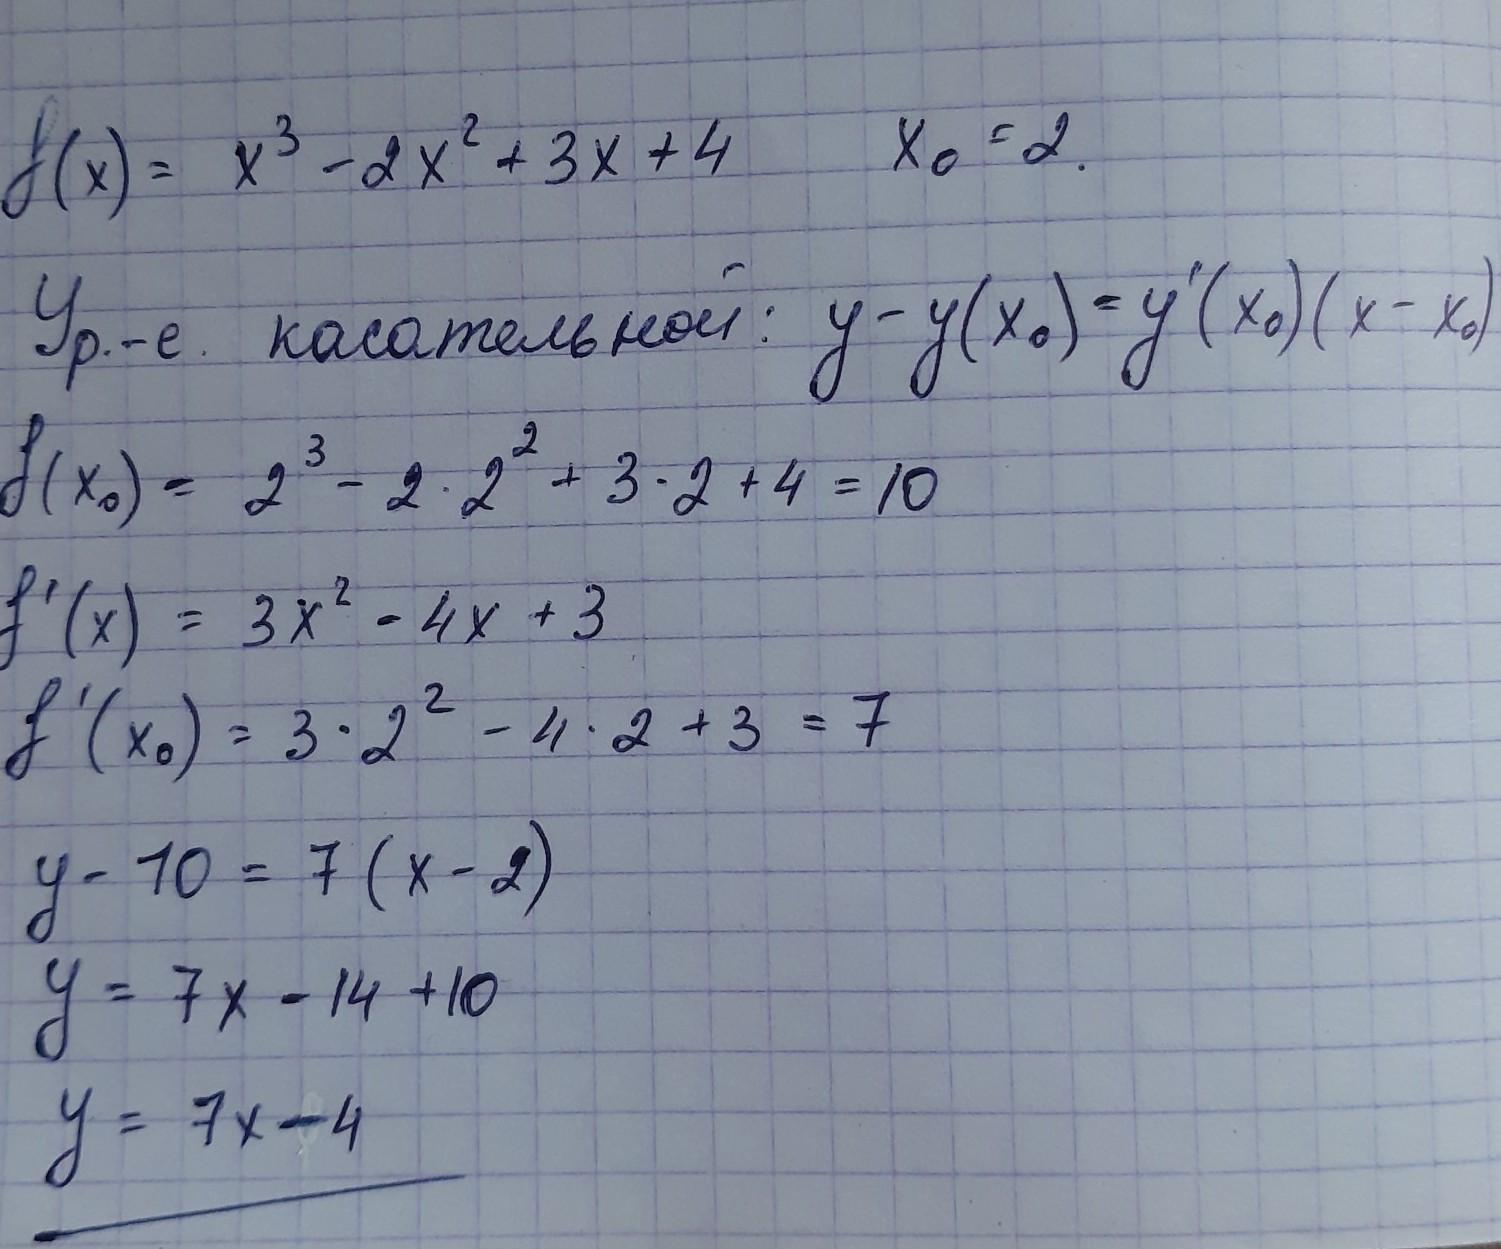 f(x) = x³ - 2x² + 3x + 4 x₀ = 2.
Ур.-е. касательной: y - y(x₀) = y'(x₀)(x - x₀)
f(x₀) = 2³ - 2·2² + 3·2 + 4 = 10
f'(x) = 3x² - 4x + 3
f'(x₀) = 3·2² - 4·2 + 3 = 7
y - 10 = 7(x - 2)
y = 7x - 14 + 10
y = 7x - 4